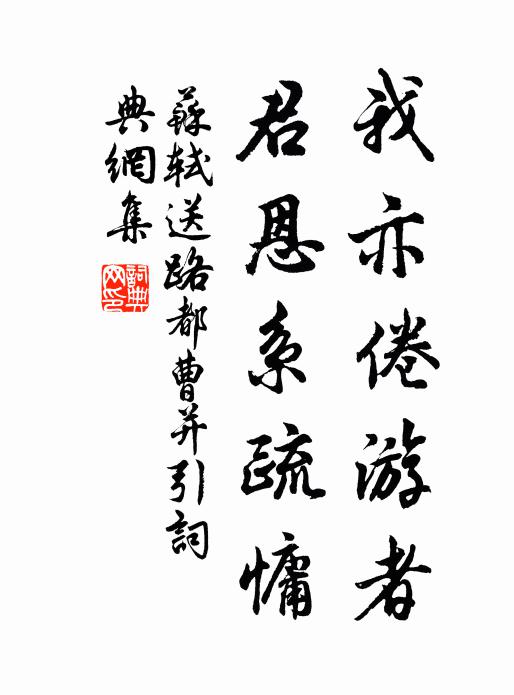 我亦倦游者
君恩系疏慵
蘇軾送路都曹并引詞
典網集
詞典網印